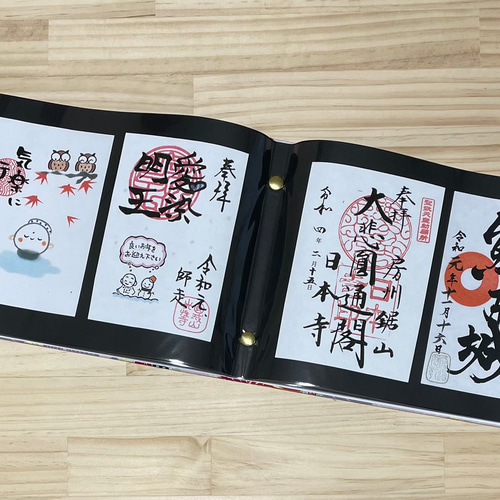 気楽に
奉拝
愛染
明王
良いお年を
お迎え下さい
令和元
師走
聖武天皇勅願所
奉拝
房州鋸山
大悲圓通閣
日本寺
令和四年二月十五日
城
令和元年十一月十六日